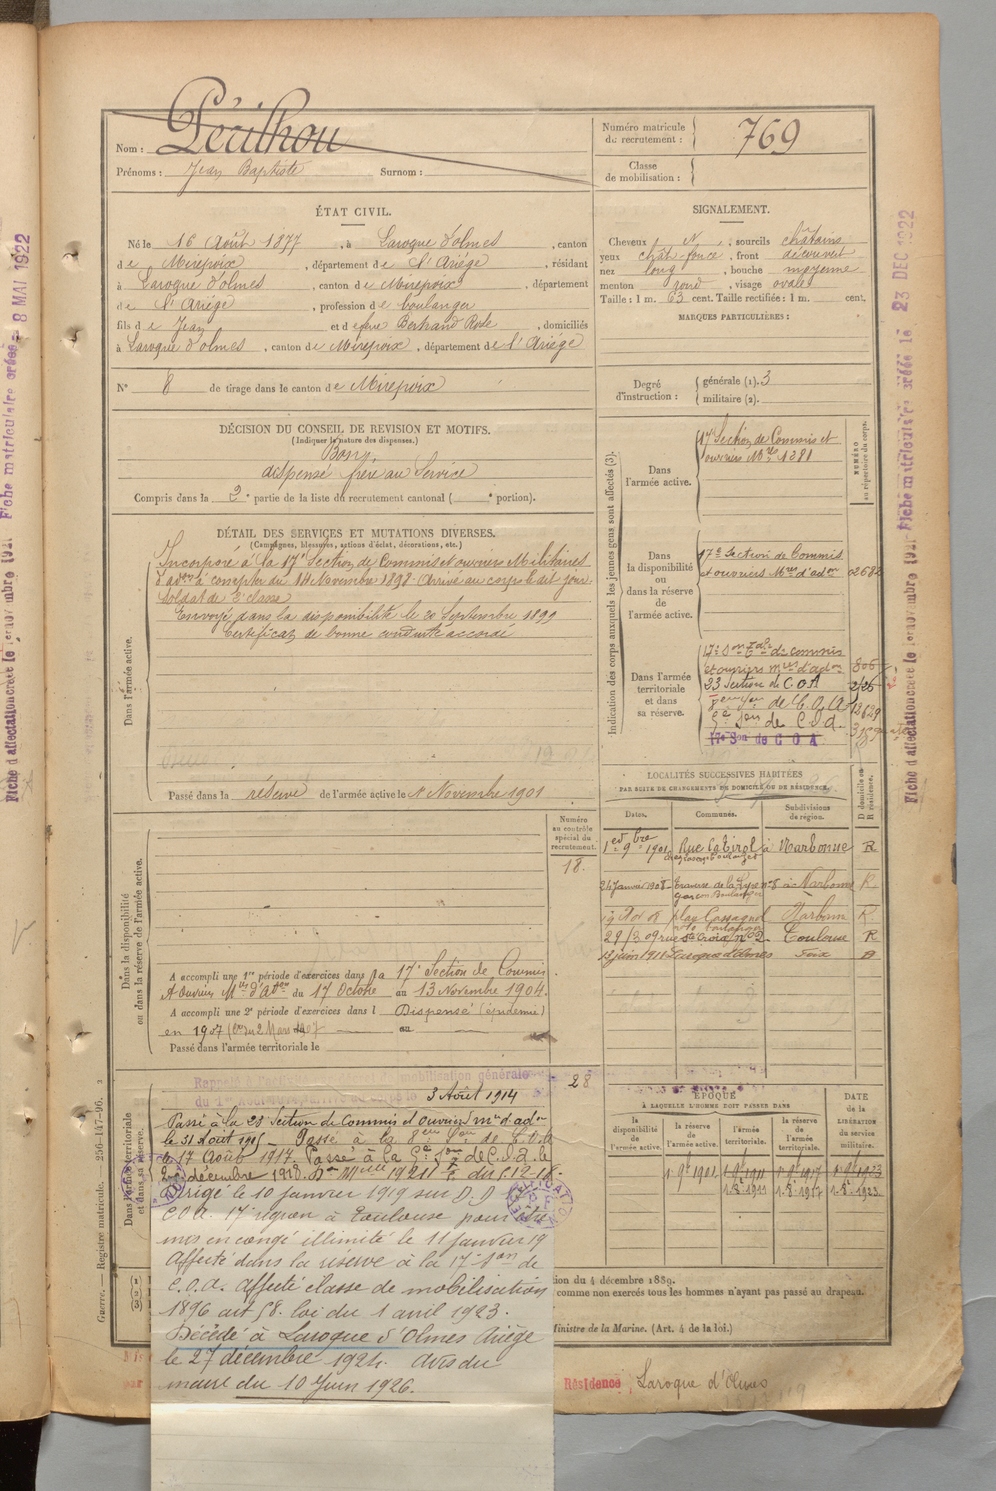 Nom : Pécilhou
Prénoms : Jean Baptiste Surnom :
Numéro matricule
du recrutement : 769
Classe
de mobilisation :
ÉTAT CIVIL.
Né le 16 Août 1877, à Laroque d'olmes, canton
de Mirepoix, département de l'Ariége, résidant
à Laroque d'olmes, canton de Mirepoix, département
de l'Ariége, profession de boulanger
fils de Jean et de feue Bertrand Rose, domiciliés
à Laroque d'olmes, canton de Mirepoix, département de l'Ariége
N° 8 de tirage dans le canton de Mirepoix
SIGNALEMENT.
Cheveux N, sourcils châtains
yeux chât foncé, front découvert
nez long, bouche moyenne
menton rond, visage ovale
Taille : 1 m. 63 cent. Taille rectifiée : 1 m. cent.
MARQUES PARTICULIÈRES :
Degré
d'instruction :
générale (1). 3
militaire (2).
DÉCISION DU CONSEIL DE REVISION ET MOTIFS.
(Indiquer la nature des dispenses.)
Bon,
dispensé frère au Service
Compris dans la 2e partie de la liste du recrutement cantonal ( e portion).
DÉTAIL DES SERVICES ET MUTATIONS DIVERSES.
(Campagnes, blessures, actions d'éclat, décorations, etc.)
Dans l'armée active.
Incorporé à la 17e Section de Commis et ouvriers Militaires
d'adon à compter du 14 Novembre 1898. Arrivé au corps le dit jour
soldat de 2e classe
Envoyé dans la disponibilité le 20 Septembre 1899
Certificat de bonne conduite accordé
Passé dans la réserve de l'armée active le 1 Novembre 1901
Indication des corps auxquels les jeunes gens sont affectés (3).
NUMÉRO
au répertoire du corps.
Dans
l'armée active.
17e Section de Commis et
ouvriers Mres 1281
Dans
la disponibilité
ou dans la réserve
de
l'armée active.
17e Section de Commis
et ouvriers Mres d'adon 02682
Dans l'armée
territoriale
et dans
sa réserve.
17e Son Tale de commis
et ouvriers mres d'adon 806
23 Section de C.O.A
8eme Son de C.O.A 12629
17e Son de C O A
LOCALITÉS SUCCESSIVES HABITÉES
PAR SUITE DE CHANGEMENTS DE DOMICILE OU DE RÉSIDENCE.
Dates. Communes. Subdivisions
de région. D domicile ou
R résidence.
1er 9bre 1901 à Narbonne R
24 Janvier 1908 Traverse de la Lyre n°8 à Narbonne R
garçon Boulanger
Narbonne R
29/3 09 rue Ste Croix n° 2 Toulouse R
13 juin 1911 Laroque d'Olmes Foix D
Dans la disponibilité
ou dans la réserve de l'armée active.
Numéro
au contrôle
spécial du
recrutement.
18.
A accompli une 1re période d'exercices dans la 17e Section de Commis
et Ouvriers Mres d'Adon du 17 Octobre au 13 Novembre 1904.
A accompli une 2e période d'exercices dans l Dispensé (épidemie)
en 1907 au
Passé dans l'armée territoriale le
Dans l'armée territoriale
et dans sa réserve.
28
3 Août 1914
Passé à la 23 Section de Commis et Ouvriers mres d'adon
le 31 Août 1915 – Passé à la 8eme Son de C.O.A.
le 17 Août 1917. Passé à la
décembre 1918.
Dirigé le 10 janvier 1919 sur D. D
C.O.A. 17e région à Toulouse pour être
mis en congé illimité le 11 janvier 19
Affecté dans la réserve à la 17e Son de
C.O.A. affecté classe de mobilisation
1896 art 58. loi du 1 avril 1923.
Décédé à Laroque d'Olmes Ariège
le 27 décembre 1924. Avis du
maire du 10 Juin 1926.
ÉPOQUE
À LAQUELLE L'HOMME DOIT PASSER DANS
la
disponibilité
de
l'armée active.
la réserve
de
l'armée active.
l'armée
territoriale.
la réserve
de
l'armée
territoriale.
DATE
de la
LIBÉRATION
du service
militaire.
1er 9bre 1901 1er 9bre 1911 1er 9bre 1917 1er 9bre 1923
1.8bre 1911 1.8bre 1917 1.8bre 1923
tion du 4 décembre 1889.
comme non exercés tous les hommes n'ayant pas passé au drapeau.
Ministre de la Marine. (Art. 4 de la loi.)
Résidence : Laroque d'Olmes
Guerre. — Registre matricule. 256-147-96.
Fiche matriculaire créée le 23 DEC 1922
8 MAI 1922